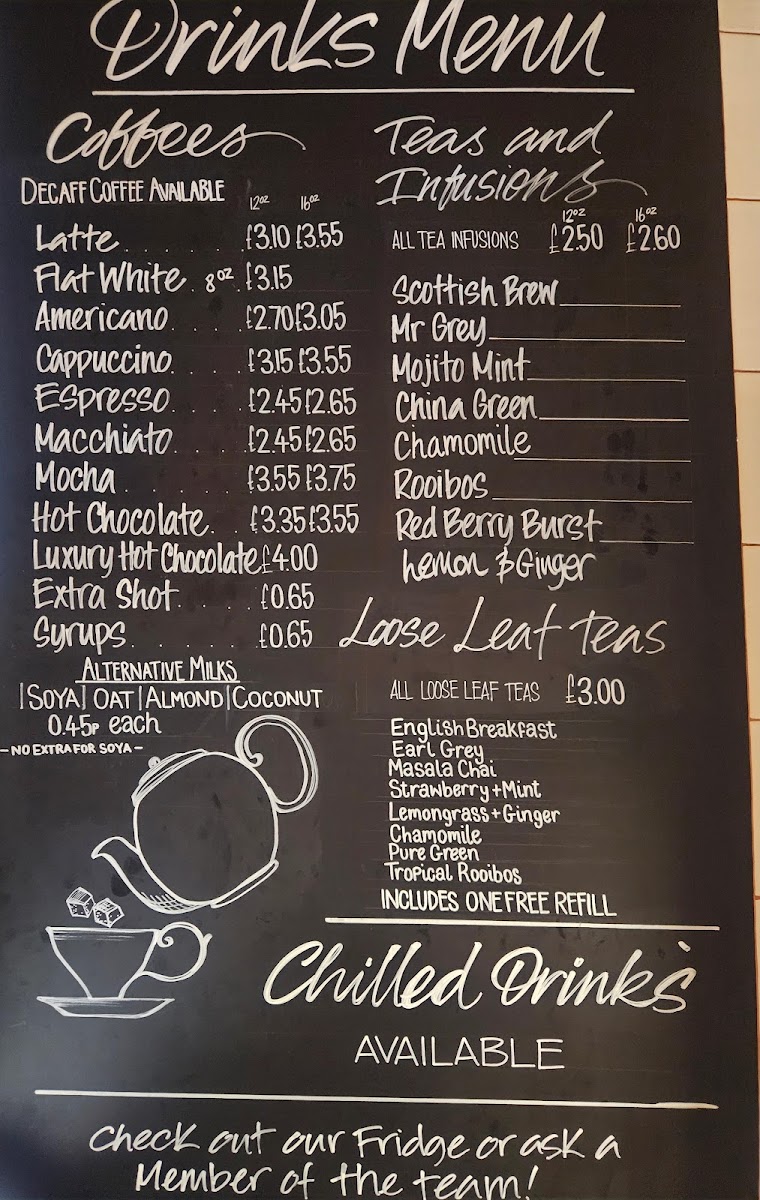 Drinks Menu
Coffees
DECAFF COFFEE AVAILABLE
12oz 16oz
Latte . . . . . . £3.10 £3.55
Flat White . 8oz . £3.15
Americano . . . . £2.70 £3.05
Cappuccino . . . . £3.15 £3.55
Espresso . . . . £2.45 £2.65
Macchiato . . . . £2.45 £2.65
Mocha . . . . . . £3.55 £3.75
Hot Chocolate . . £3.35 £3.55
Luxury Hot Chocolate £4.00
Extra Shot . . . . £0.65
Syrups . . . . . . £0.65
ALTERNATIVE MILKS
|SOYA| OAT |ALMOND|COCONUT
0.45p each
- NO EXTRA FOR SOYA -
Teas and
Infusions
12oz 16oz
ALL TEA INFUSIONS £2.50 £2.60
Scottish Brew
Mr Grey
Mojito Mint
China Green
Chamomile
Rooibos
Red Berry Burst
Lemon & Ginger
Loose Leaf Teas
ALL LOOSE LEAF TEAS £3.00
English Breakfast
Earl Grey
Masala Chai
Strawberry + Mint
Lemongrass + Ginger
Chamomile
Pure Green
Tropical Rooibos
INCLUDES ONE FREE REFILL
Chilled Drinks
AVAILABLE
Check out our Fridge or ask a
Member of the team!